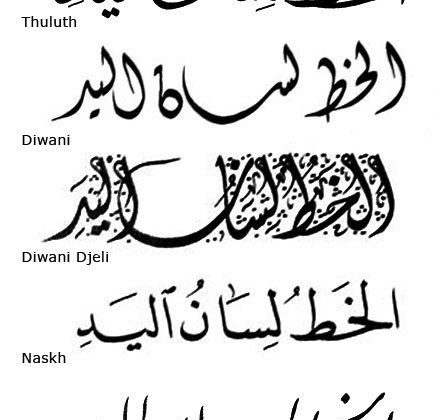 Thuluth
الخط لسان اليد
Diwani
الخط لسان اليد
Diwani Djeli
الخَطُّ لِسَانُ ٱليَدِ
Naskh